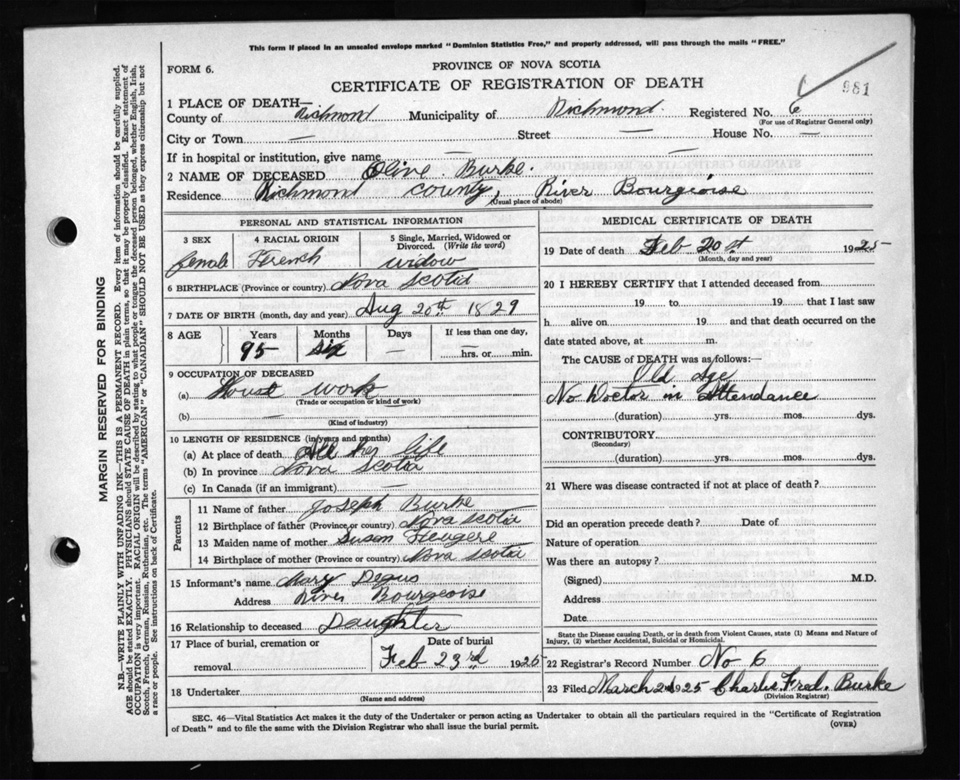 This form if placed in an unsealed envelope marked "Dominion Statistics Free," and properly addressed, will pass through the mails "FREE."
FORM 6.
PROVINCE OF NOVA SCOTIA
CERTIFICATE OF REGISTRATION OF DEATH
981
1 PLACE OF DEATH—
County of Richmond Municipality of Richmond. Registered No. 6
(For use of Registrar General only)
City or Town — Street — House No. —
If in hospital or institution, give name — —
2 NAME OF DECEASED Olive Burke.
Residence Richmond County, River Bourgeoise
(Usual place of abode)
PERSONAL AND STATISTICAL INFORMATION
3 SEX 4 RACIAL ORIGIN 5 Single, Married, Widowed or Divorced. (Write the word)
female French widow
6 BIRTHPLACE (Province or country) Nova Scotia
7 DATE OF BIRTH (month, day and year) Aug 20th 1829
8 AGE Years Months Days If less than one day,
95 six — — hrs. or min.
9 OCCUPATION OF DECEASED
(a) House work
(Trade or occupation or kind of work)
(b) —
(Kind of industry)
10 LENGTH OF RESIDENCE (in years and months)
(a) At place of death All her life
(b) In province Nova Scotia
(c) In Canada (if an immigrant) —
Parents
11 Name of father Joseph Burke
12 Birthplace of father (Province or country) Nova Scotia
13 Maiden name of mother Susan
14 Birthplace of mother (Province or country) Nova Scotia
15 Informant's name Mary
Address River Bourgeoise
16 Relationship to deceased Daughter
17 Place of burial, cremation or removal Date of burial
Feb 23rd 1925
18 Undertaker
(Name and address)
MEDICAL CERTIFICATE OF DEATH
19 Date of death Feb 20th 1925
(Month, day and year)
20 I HEREBY CERTIFY that I attended deceased from
19 to 19 that I last saw
h alive on 19 and that death occurred on the
date stated above, at m.
The CAUSE of DEATH was as follows:—
Old Age
No Doctor in Attendance
(duration) yrs. mos. dys.
CONTRIBUTORY
(Secondary)
(duration) yrs. mos. dys.
21 Where was disease contracted if not at place of death?
Did an operation precede death? Date of
Nature of operation
Was there an autopsy?
(Signed) M.D.
Address
Date
State the Disease causing Death, or in death from Violent Causes, state (1) Means and Nature of
Injury, (2) whether Accidental, Suicidal or Homicidal.
22 Registrar's Record Number No 6
23 Filed March 2nd 1925 Charlie Fred. Burke
(Division Registrar)
SEC. 46—Vital Statistics Act makes it the duty of the Undertaker or person acting as Undertaker to obtain all the particulars required in the "Certificate of Registration
of Death" and to file the same with the Division Registrar who shall issue the burial permit.
(OVER)
MARGIN RESERVED FOR BINDING
N.B.—WRITE PLAINLY WITH UNFADING INK—THIS IS A PERMANENT RECORD. Every item of information should be carefully supplied.
AGE should be stated EXACTLY. PHYSICIANS should STATE CAUSE OF DEATH in plain terms, so that it may be properly classified. Exact statement of
OCCUPATION is very important. RACIAL ORIGIN will be described by stating to what people or tongue the deceased person belonged, whether English, Irish,
Scotch, French, German, Russian, Ruthenian, etc. The terms "AMERICAN" or "CANADIAN" SHOULD NOT BE USED as they express citizenship but not
a race or people. See instructions on back of Certificate.